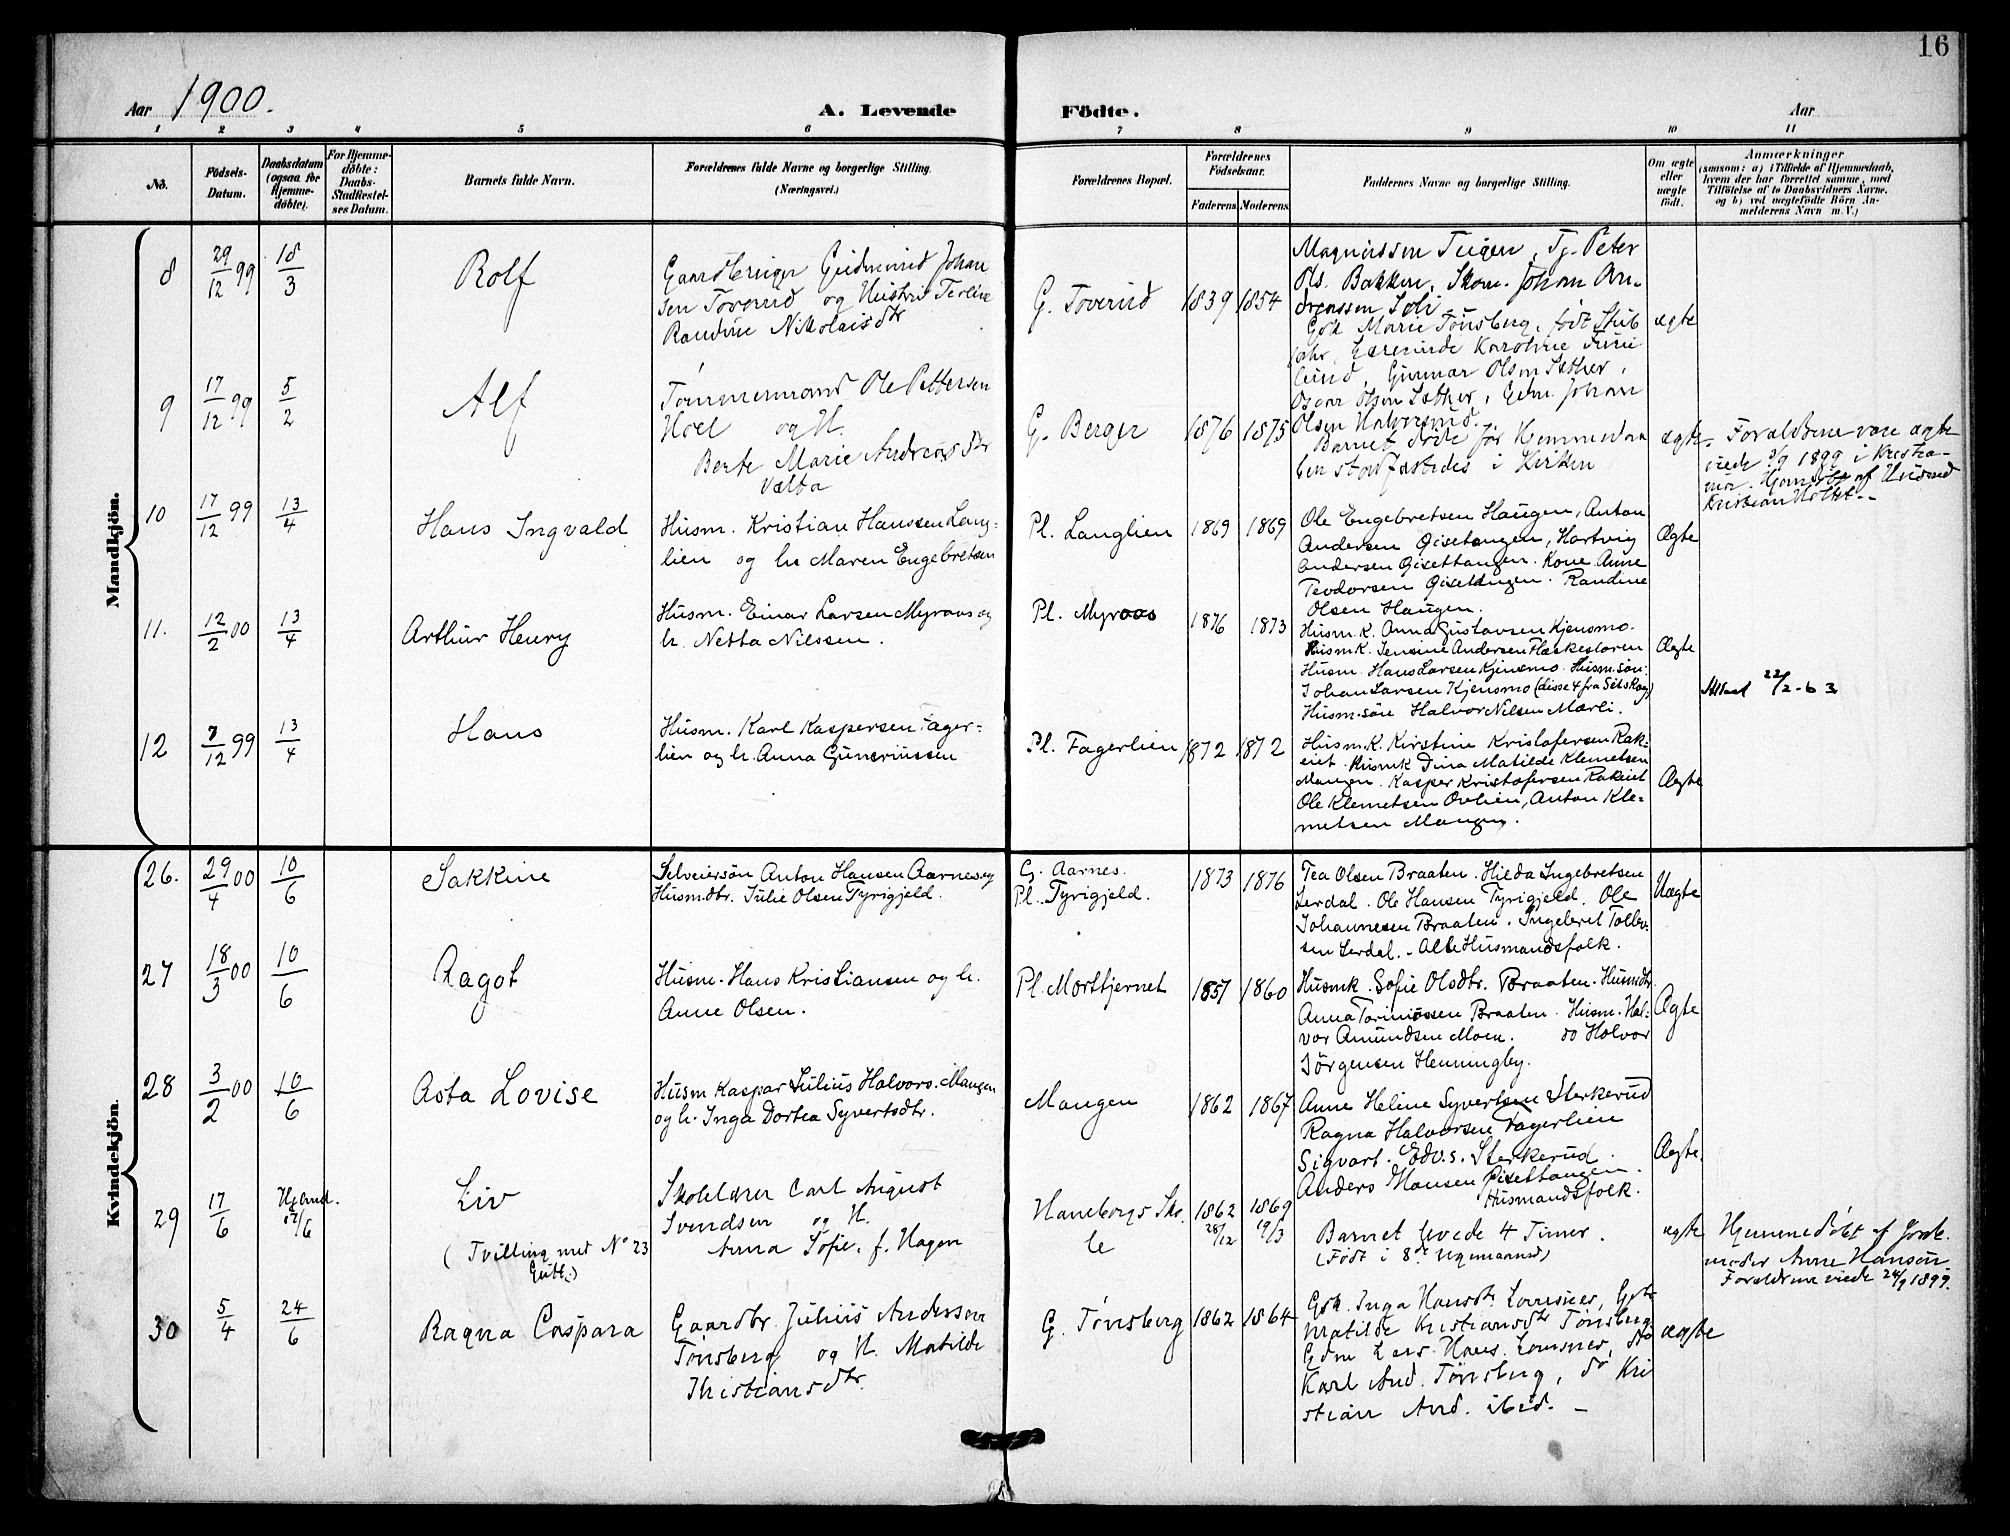 16
Aar 1900.
A. Levende Födte.
Aar
1 2 3 4 5 6 7 8 9 10 11
No.
Födsels-Datum.
Daabsdatum (ogsaa for Hjemme-döbte).
For Hjemme-döbte: Daabs-Stadfæstel-ses Datum.
Barnets fulde Navn.
Forældrenes fulde Navne og borgerlige Stilling.
(Næringsvei.)
Forældrenes Bopæl.
Forældrenes Födselsaar.
Faderens Moderens
Faddernes Navne og borgerlige Stilling.
Om ægte eller uægte födt.
Anmærkninger
(saasom: a) i Tilfælde af Hjemmedaab,
hvem der har forrettet samme, med
Tilföielse af to Daabsvidners Navne,
og b) ved uægtefödte Börn An-
melderens Navn m. V.)
Mandkjön.
8 29/12 99 18/3 Rolf
Gaardbruger Gudmund Johan
sen Toverud og Hustru
Randine Nikolaisdtr
G. Toverud 1839 1854
Magnussen Teigen, Tj. Peter
Ols. Bakken, Skom. Johan An-
dreassen Sæli
ægte
9 17/12 99 5/2 Alf
Tømmermand Ole Pettersen
Hoel og H.
Berte Marie Andreasdtr
G. Berger 1876 1875
Gsk Marie Tønsberg, født Stub
Karoline
Gunnar Olsen Sæther,
Oscar Olsen Sæther, Gdm. Johan
Olsen Halvorsrud.
Barnet døde før Hjemmedaa
ben stadfæstedes i Kirken
ægte
Forældrene vare ægte
viede 3/9 1899 i Kristia-
nia. Hjemdøbt af
Kristian Holtet
10 17/12 99 13/4 Hans Ingvald
Husm. Kristian Hanssen Lang-
lien og h. Maren Engebretsen
Pl. Langlien 1869 1869
Ole Engebretsen Haugen, Anton
Andersen Gisettangen, Hartvig
Andersen Gisettangen. Kone Anne
Teodorsen Gisettangen. Randine
Olsen Haugen.
Ægte
11. 12/2 00 13/4 Arthur Henry
Husm. Einar Larsen Myraas og
h. Netta Nilssen.
Pl. Myraas 1876 1873
Husm. K. Anna Gustavsen Kjensmo.
Husm K. Jensine Andersen Flæskestøren
Husm. Hans Larsen Kjensmo. Husm. søn:
Johan Larsen Kjensmo (disse 4 fra Setskog)
Husm. søn Halvor Nilsen Mærli.
Ægte
Attest 22/2-63
12 7/12 99 13/4 Hans
Husm. Karl Kaspersen Fager-
lien og h. Anna Guneriussen
Pl. Fagerlien 1872 1872
Husm. K. Kirstine Kristofersen Rak-
eiet. Husmk Dina Matilde Klemetsen
Mangen. Kasper Kristofersen Rakeiet
Ole Klemetsen Ovlien, Anton Kle-
metsen Mangen.
Ægte
Kvindekjön.
26. 29/4 00 10/6 Jakkine
Selveiersøn Anton Hansen Aarnes og
Husm.dtr. Julie Olsen Tyrigjeld.
G. Aarnes.
Pl. Tyrigjeld. 1873 1876
Tea Olsen Braaten. Hilda Ingebretsen
Lerdal. Ole Hansen Tyrigjeld. Ole
Johannesen Braaten. Ingebret Tollev-
sen Lerdal. - Alle Husmandsfolk.
Uægte
27 18/3 00 10/6 Ragot
Husm. Hans Kristiansen og h.
Anne Olsen.
Pl. Morttjernet 1857 1860
Husmk. Sofie Olsdtr. Braaten. Husmdtr.
Anna Torinussen Braaten. Husm. Hal-
vor Amundsen Moen. do Halvor
Jørgensen Henningby.
Ægte
28 3/2 00 10/6 Asta Lovise
Husm Kaspar Julius Halvors. Mangen
og h. Inga Dortea Syvertsdtr.
Mangen 1862 1867
Anne Heline Syvertsen Sterkerud
Ragna Halvorsen Fagerlien
Sigvart. Edv. s. Sterkerud.
Anders Hansen Gisettangen.
Husmandsfolk.
Ægte.
29 17/6 Hjemd. 17/6 Liv
(Tvilling med No 23
Gutt.)
Skolelærer Carl August
Svendsen og H.
Anna Sofie, f. Hagen
Haneborgs Sko-
le 1862 28/12 1869 19/3
Barnet levede 4 Timer.
(Født i 8de )
ægte
Hjemmedøbt af Jorde-
moder Anne Hansen.
Forældrene viede 24/9 1899.
30 5/4 24/6 Ragna Caspara
Gaardbr. Julius Andersen
Tønsberg og H. Matilde
Kristiansdtr.
G. Tønsberg 1862 1864
Gsk. Inga Hansdtr. Lomsnes, Gsk
Matilde Kristiansdtr Tønsberg
Gdm Lars Hans. Lomsnes, do
Karl And. Tønsberg, do Kri
stian And. ibid. -
ægte